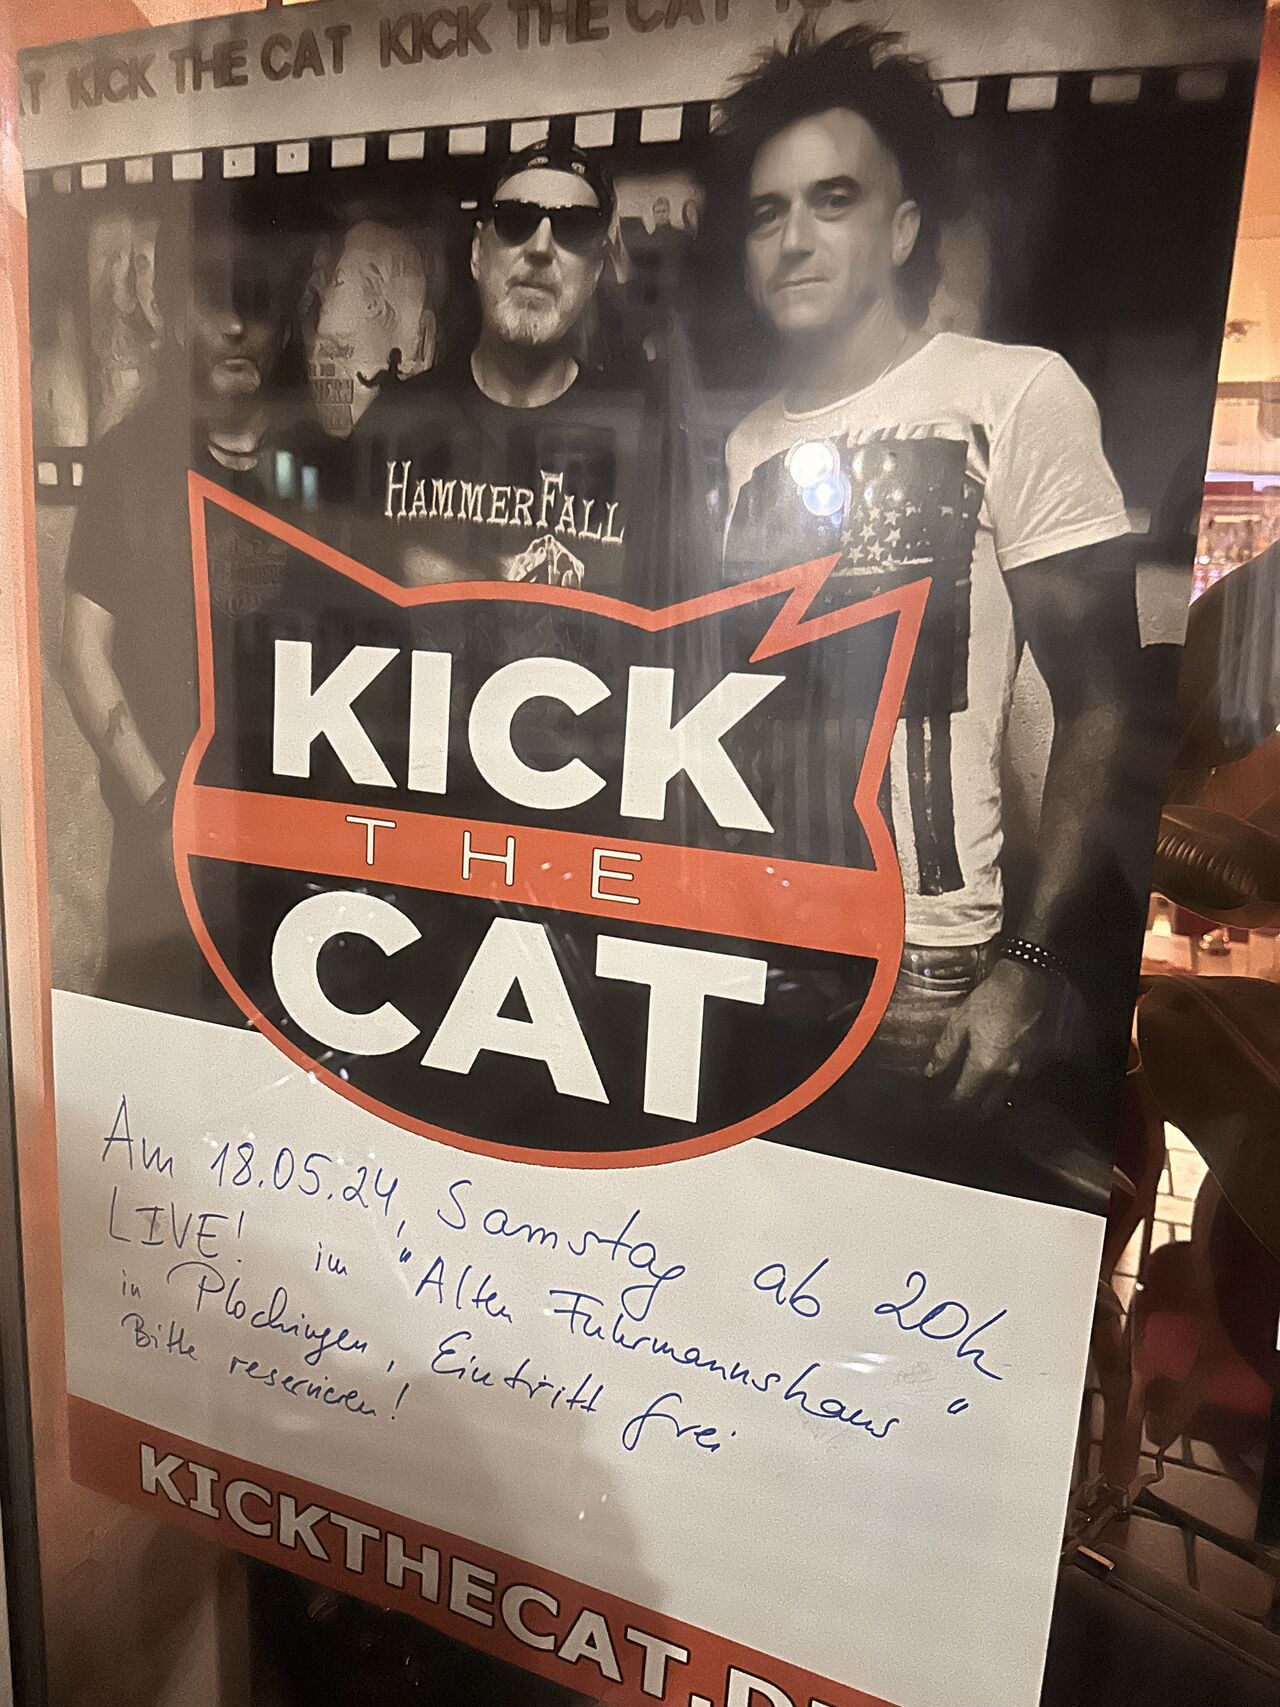 T KICK THE CAT KICK THE CAT
HAMMERFALL
KICK
THE
CAT
Am 18.05.24, Samstag ab 20h
LIVE! im "Alten Fuhrmannshaus"
in Plochingen, Eintritt frei
Bitte reservieren!
KICKTHECAT.D